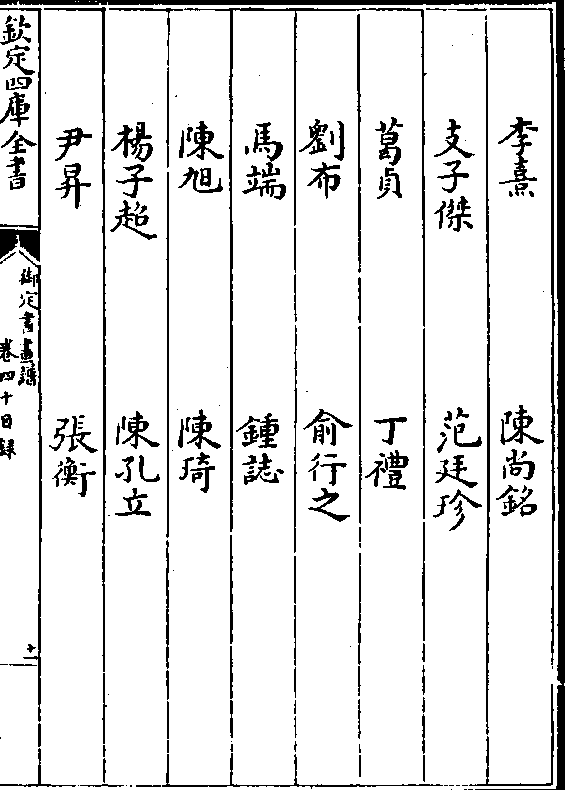 李熹　陳尚銘
支子傑　范廷珍
葛貞　丁禮
劉布　俞行之
馬端　鍾誌
陳旭　陳琦
楊子超　陳孔立
尹昇　張衡
欽定四庫全書
御定書畫譜
卷四十目錄
十一